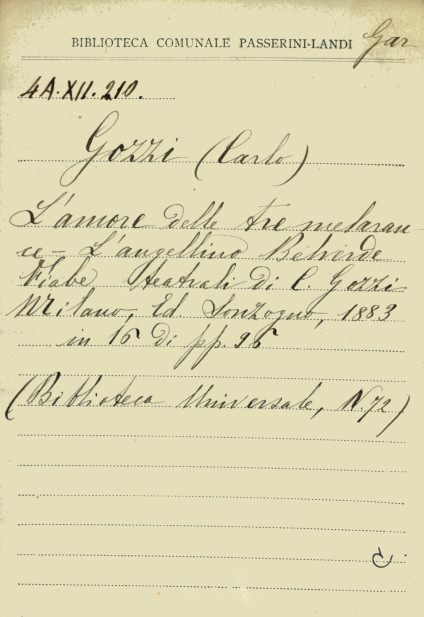 BIBLIOTECA COMUNALE PASSERINI-LANDI Gar
4A.XII.210.
Gozzi (Carlo)
L'amore delle tre melaran-
ce = L'augellino Belverde
Fiabe teatrali di C. Gozzi
Milano, Ed. Sonzogno, 1883
in 16 di pp. 96
(Biblioteca Universale, N. 72)